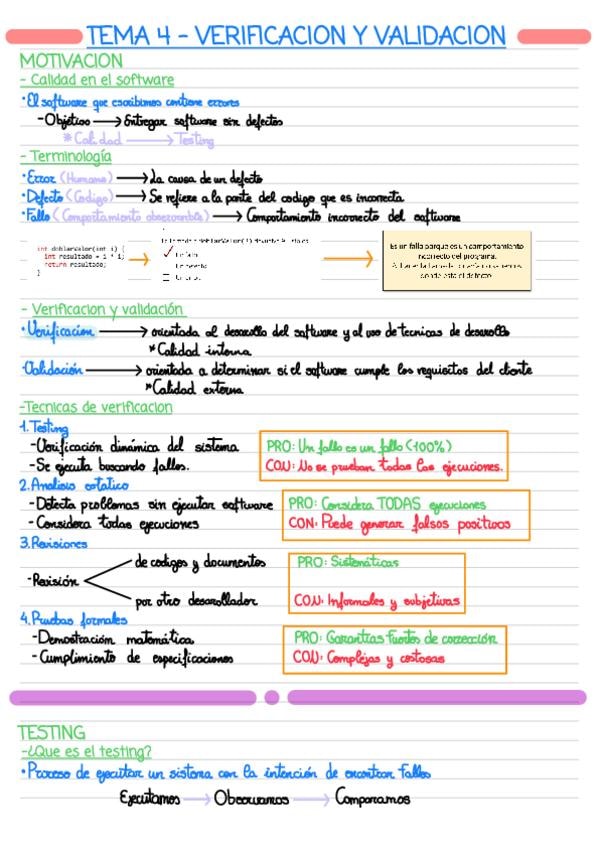 TEMA 4 - VERIFICACION Y VALIDACION
MOTIVACION
- Calidad en el software
·El software que escribimos contiene errores
-Objetivo → Entregar software sin defectos
*Calidad → Testing
- Terminología
·Error (Humano) → La causa de un defecto
·Defecto (Codigo) → Se refiere a la parte del codigo que es incorrecta
·Fallo (Comportamiento observable) → Comportamiento incorrecto del software
int doblarValor(int i) {
int resultado = i * i;
return resultado;
}
Es un fallo porque es un comportamiento
incorrecto del programa.
- Verificacion y validación
·Verificacion → orientada al desarrollo del software y al uso de tecnicas de desarrollo
*Calidad interna
·Validación → orientada a determinar si el software cumple los requisitos del cliente
*Calidad externa
-Tecnicas de verificacion
1.Testing
-Verificación dinámica del sistema PRO: Un fallo es un fallo (100%)
-Se ejecuta buscando fallos. CON: No se prueban todas las ejecuciones.
2.Analisis estatico
-Detecta problemas sin ejecutar software PRO: Considera TODAS ejecuciones
-Considera todas ejecuciones CON: Puede generar falsos positivos
3.Revisiones
de codigos y documentos PRO: Sistemáticas
-Revisión
por otro desarrollador CON: Informales y subjetivas
4.Pruebas formales
-Demostración matemática PRO: Garantias fuertes de corrección
-Cumplimiento de especificaciones CON: Complejas y costosas
TESTING
-¿Que es el testing?
·Proceso de ejecutar un sistema con la intención de encontrar fallos
Ejecutamos → Observamos → Comparamos